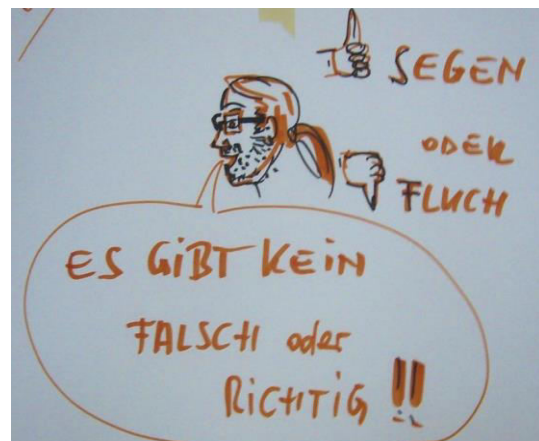 SEGEN
ODER
FLUCH
ES GiBT KEiN
FALSCH oder
RiCHTiG !!